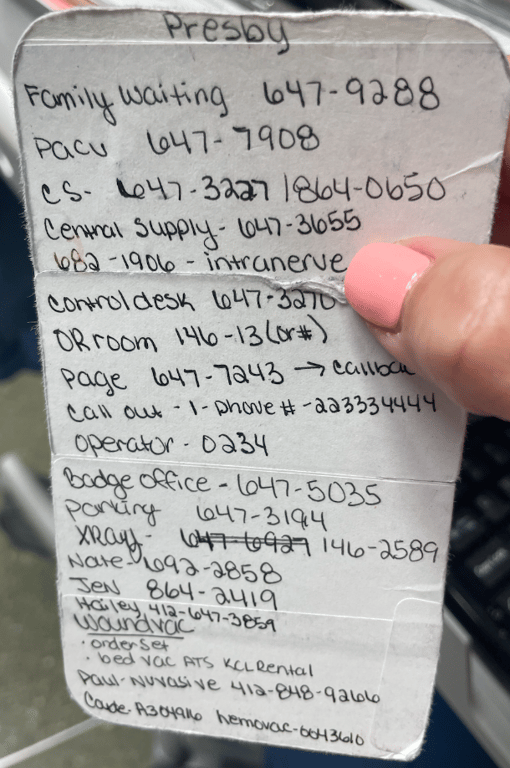 Presby
Family Waiting 647-9288
PACU 647-7908
CS- 647-3227 / 864-0650
Central Supply- 647-3655
682-1906 - intranerve
control desk 647-3270
OR room 146-13(or#)
Page 647-7243 →
Call out - 1- phone # -223334444
Operator - 0234
Badge office - 647-5035
Parking 647-3194
XRAY- 647-6927 146-2589
Nate- 692-2858
Jen 864-2419
Hailey 412-647-3859
Woundvac
· order set
· bed vac ATS KCI Rental
Paul- Nuvasive 412-848-9266
hemovac-0043610